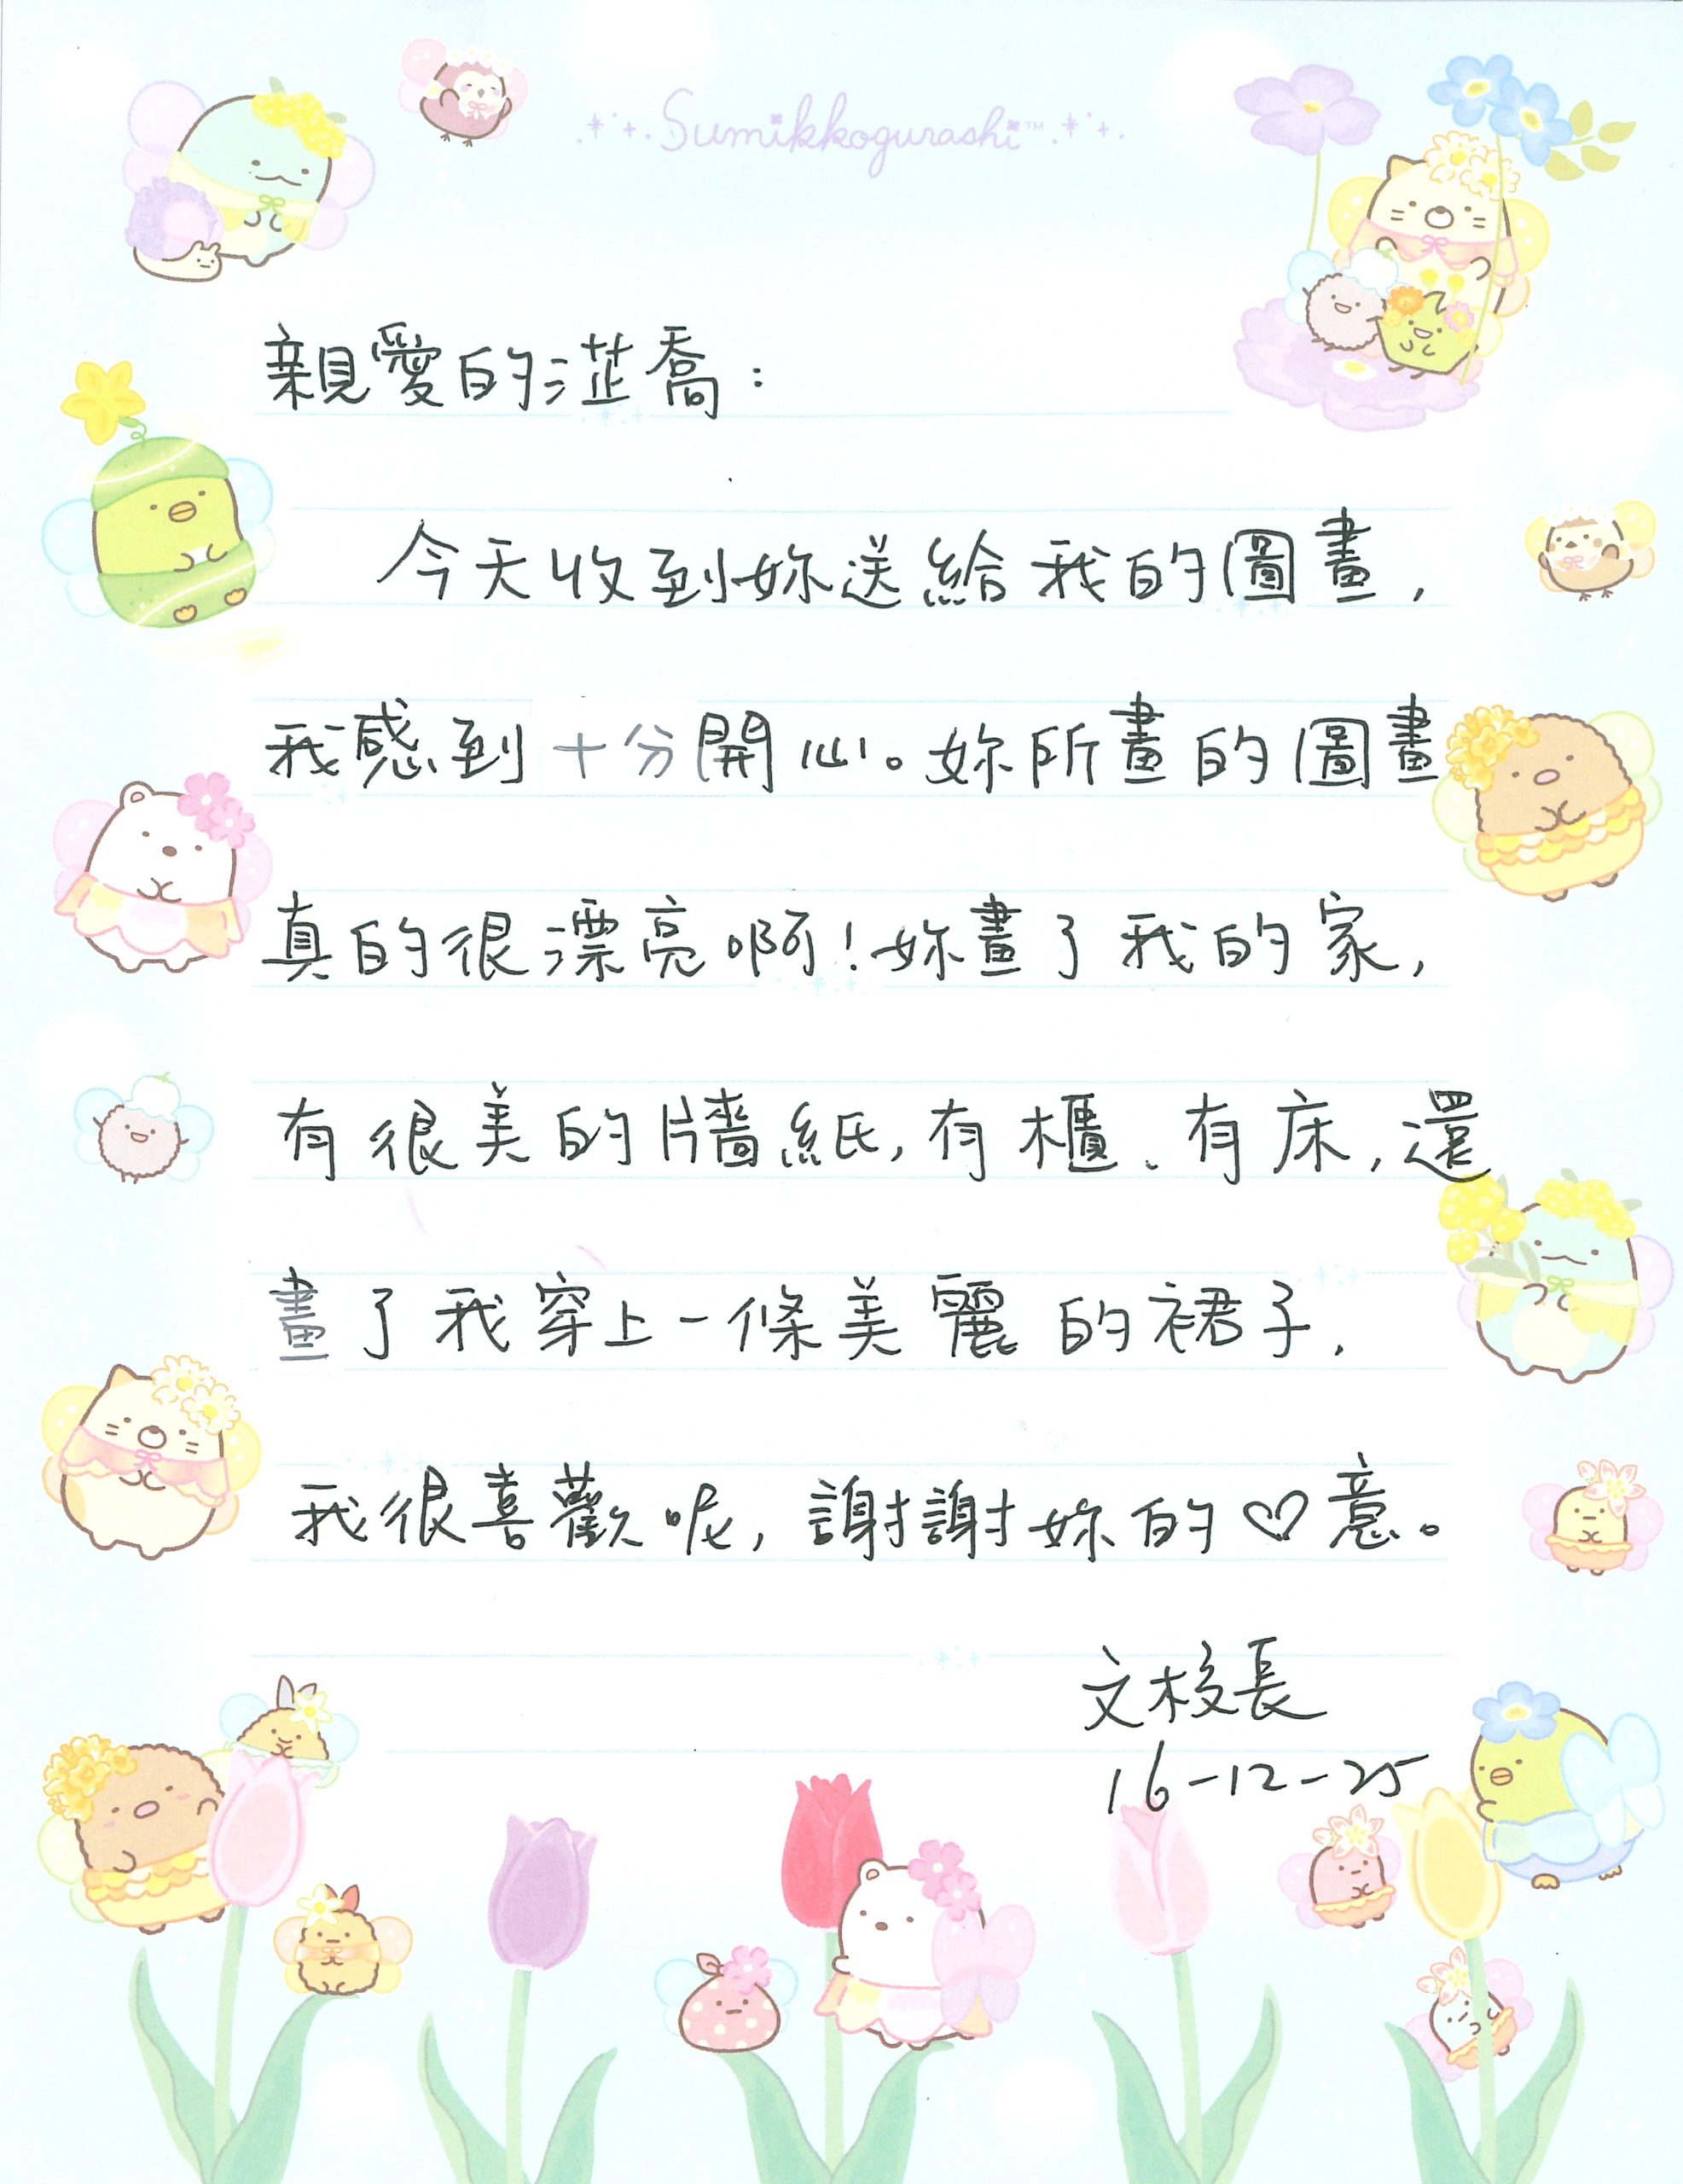 Sumikkogurashi™
親愛的芷喬：
今天收到妳送給我的圖畫，
我感到十分開心。妳所畫的圖畫
真的很漂亮啊！妳畫了我的家，
有很美的牆紙，有櫃、有床，還
畫了我穿上一條美麗的裙子，
我很喜歡呢，謝謝妳的♡意。
文校長
16-12-25